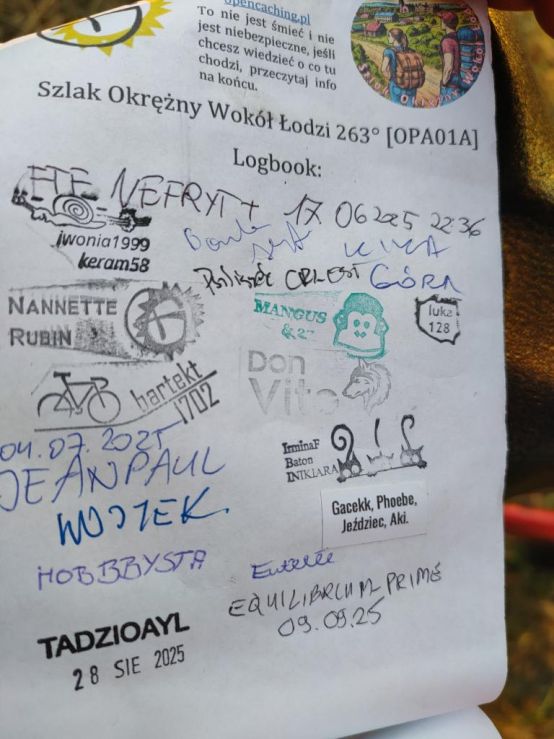 opencaching.pl
To nie jest śmieć i nie
jest niebezpieczne, jeśli
chcesz wiedzieć o co tu
chodzi, przeczytaj info
na końcu.
Szlak Okrężny Wokół Łodzi 263° [OPA01A]
Logbook:
NEFRYT + 17 06 2025 22:36
jwonia1999
keram58
GÓRA
NANNETTE
RUBIN
MANGUS
& 27
luka
128
bartekt
1702
Don
Vito
04.07.2025
JEANPAUL
IrminaF
Baton
INIKJARA
WOJTEK
Gacekk, Phoebe,
Jeździec, Aki.
HOBBYSTA
EQUILIBRIUM PRIME
09.09.25
TADZIOAYL
28 SIE 2025